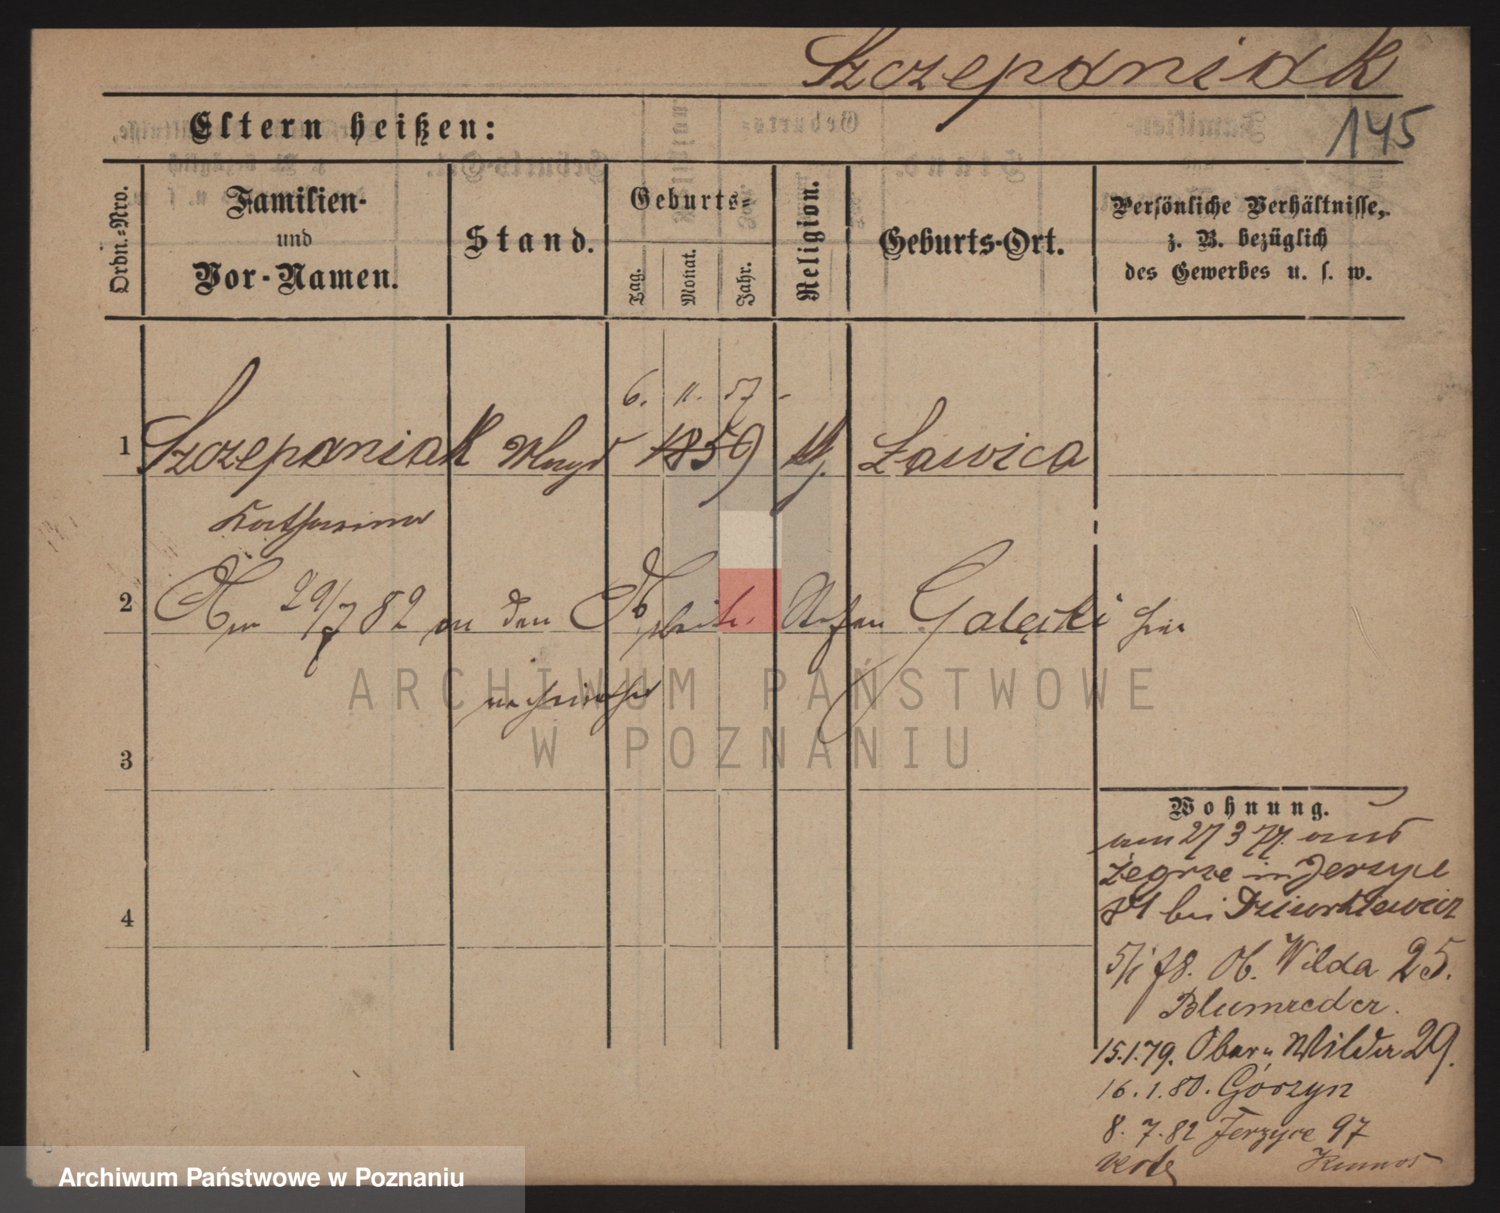 Szczepaniak
145
Eltern heißen:
Ordn.-Nro.
Familien- und Vor-Namen.
Stand.
Geburts-
Tag.
Monat.
Jahr.
Religion.
Geburts-Ort.
Persönliche Verhältnisse, z. B. bezüglich des Gewerbes u. s. w.
6. 11. 57
1 Szczepaniak Magd 1859 Ławica
Katharina
2 29/7 82 an den Arbeiter Galęcki hier
verheirathet
3
Wohnung.
am 27 3 77. aus
Żegrze in Jerzyce
bei
4
5/1 78. Ob. Wilda 25.
Blumreder.
15.1.79. Ober Wilda 29.
16.1.80. Górzyn
8.7.82 Jerzyce 97
ARCHIWUM PAŃSTWOWE
W POZNANIU
Archiwum Państwowe w Poznaniu